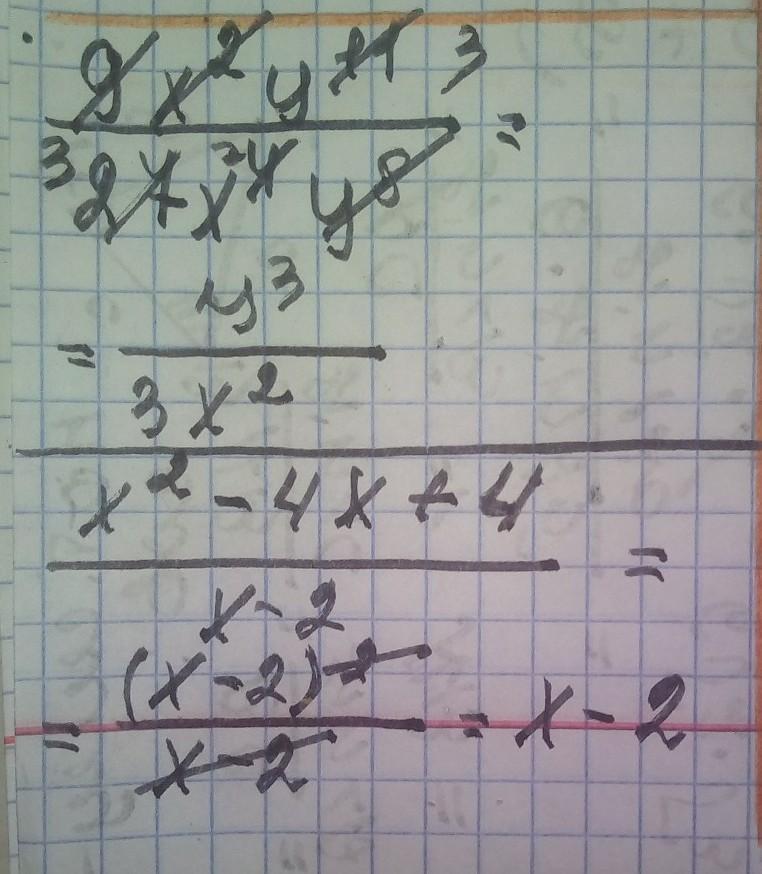 9x²y¹¹ 3
3 27x² ⁴y⁸ =
= y³
3x²
x² - 4x + 4
x - 2 =
= (x - 2)²
x - 2 = x - 2